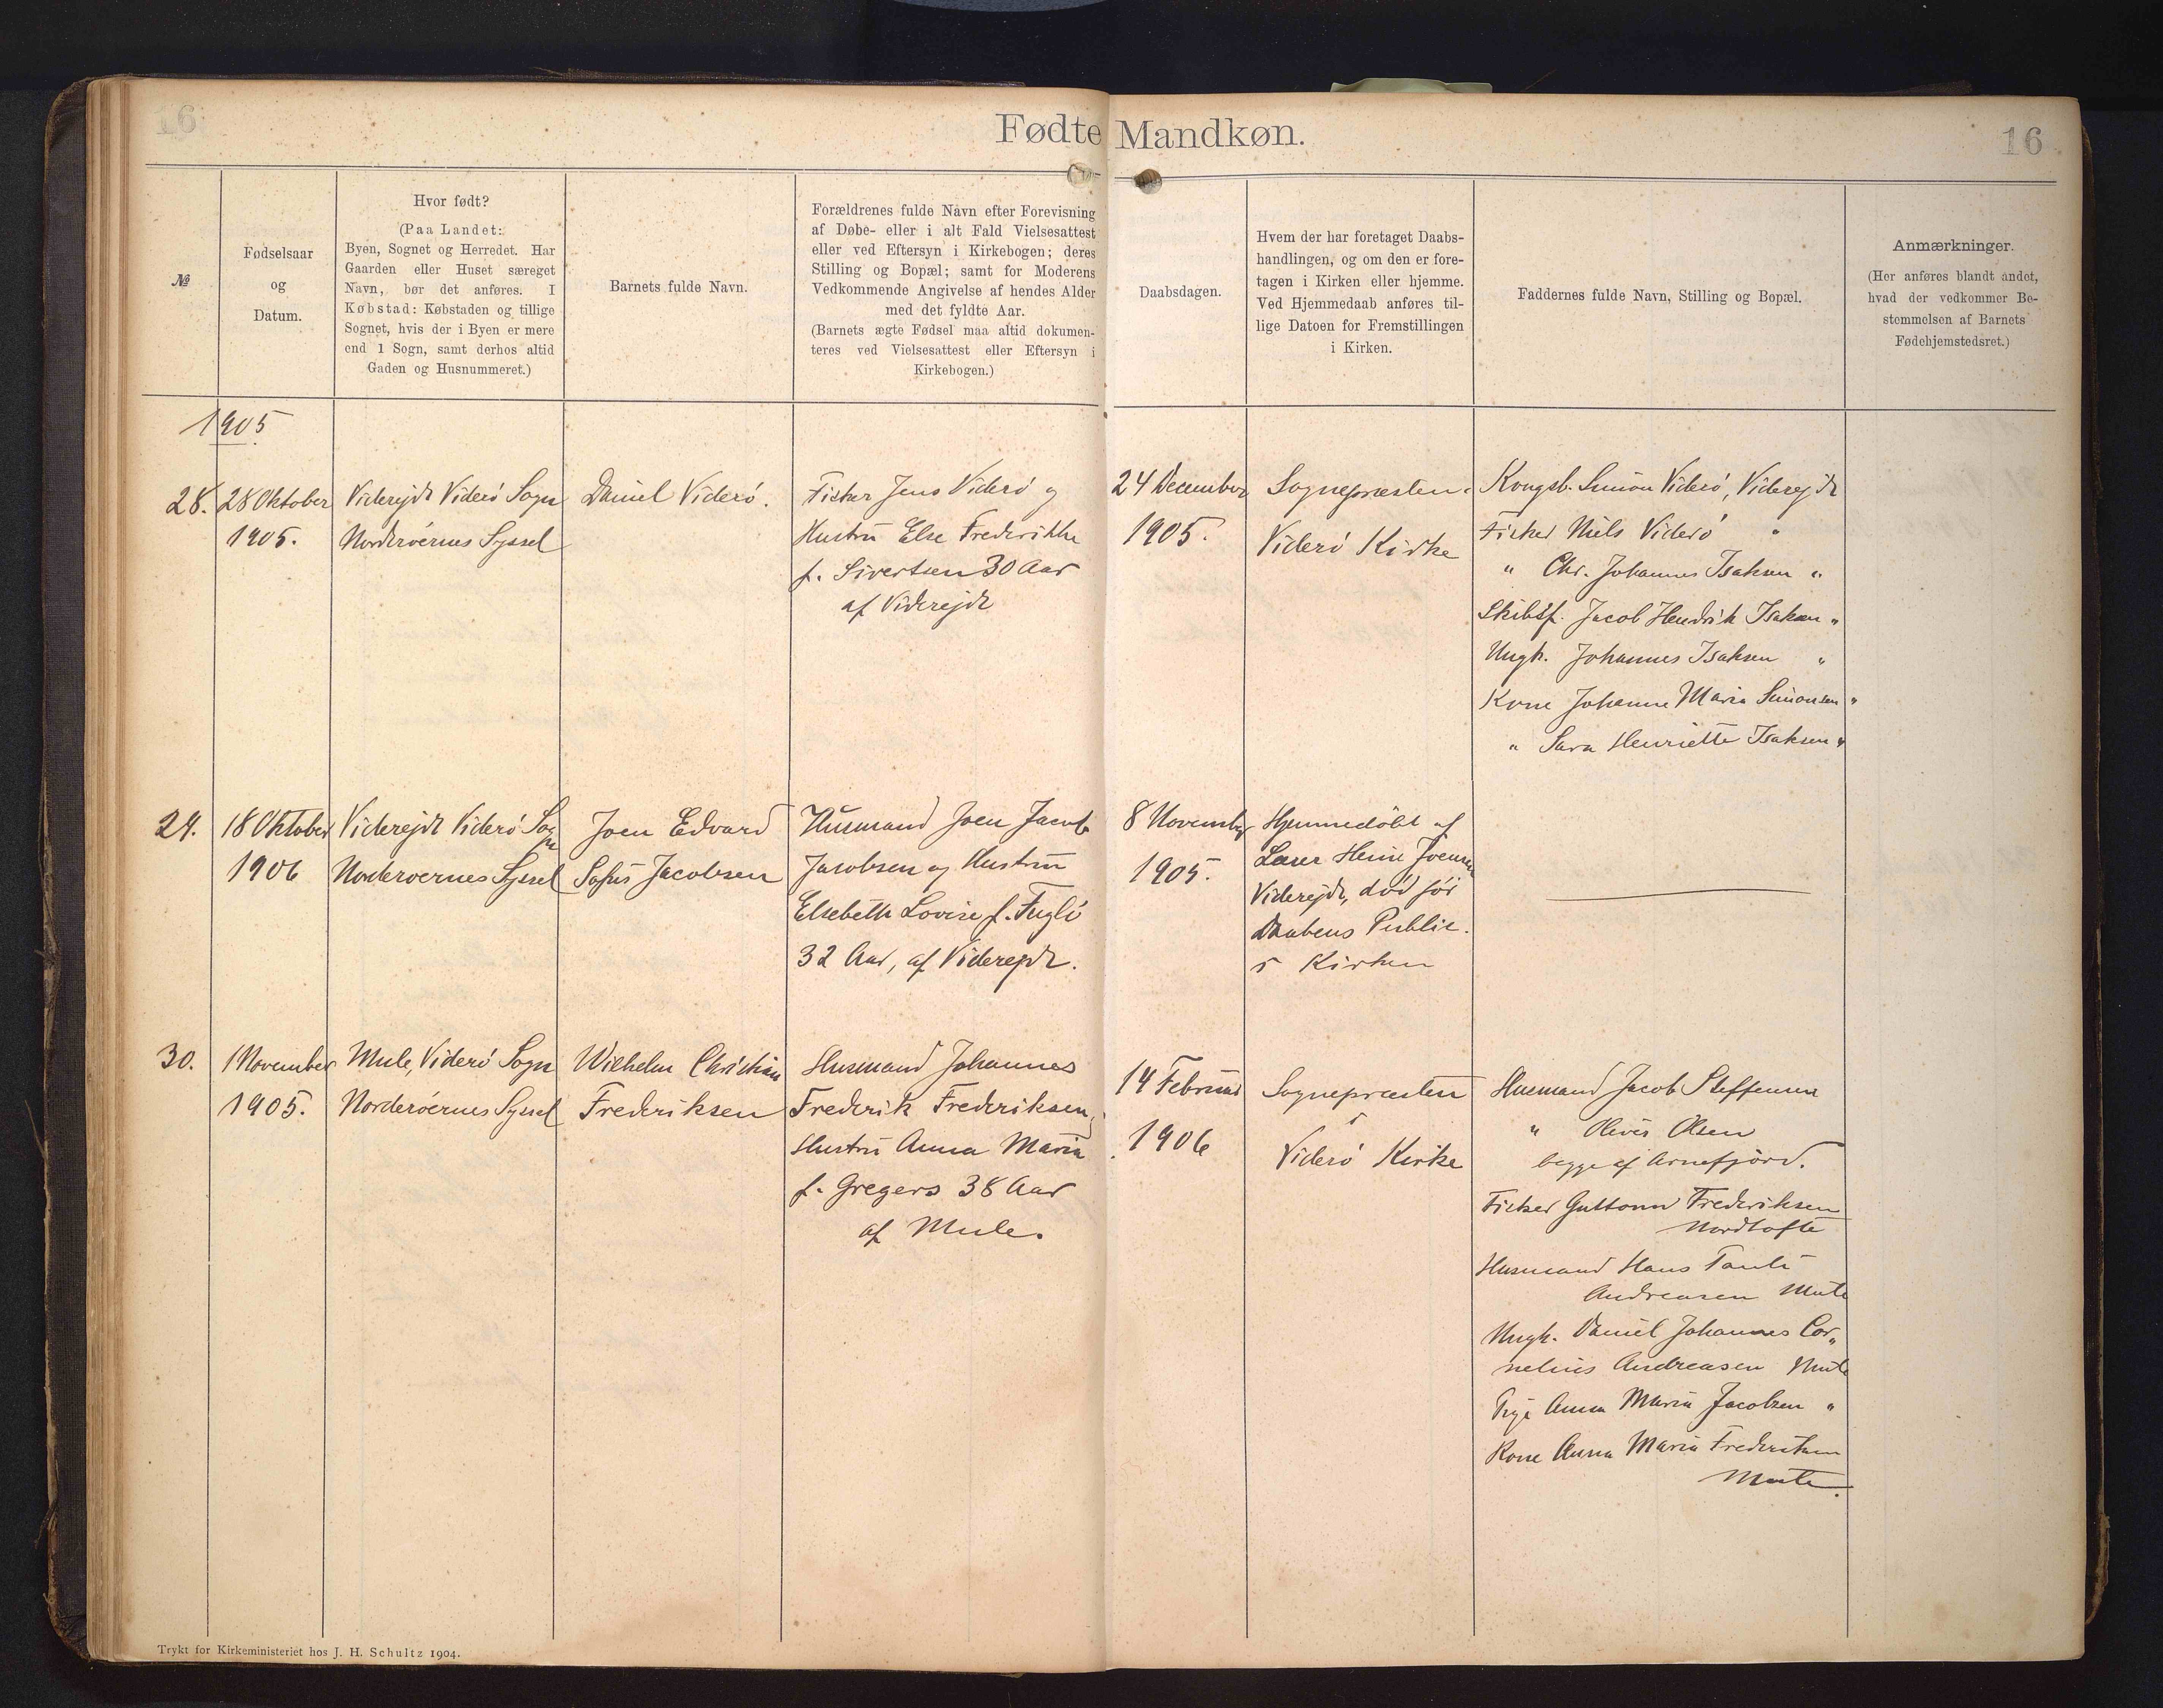 16
Fødte Mandkøn.
16
№
Fødselsaar
og
Datum.
Hvor født?
(Paa Landet:
Byen, Sognet og Herredet. Har
Gaarden eller Huset særeget
Navn, bør det anføres. I
Købstad: Købstaden og tillige
Sognet, hvis der i Byen er mere
end 1 Sogn, samt derhos altid
Gaden og Husnummeret.)
Barnets fulde Navn.
Forældrenes fulde Navn efter Forevisning
af Døbe- eller i alt Fald Vielsesattest
eller ved Eftersyn i Kirkebogen; deres
Stilling og Bopæl; samt for Moderens
Vedkommende Angivelse af hendes Alder
med det fyldte Aar.
(Barnets ægte Fødsel maa altid dokumen-
teres ved Vielsesattest eller Eftersyn i
Kirkebogen.)
Daabsdagen.
Hvem der har foretaget Daabs-
handlingen, og om den er fore-
tagen i Kirken eller hjemme.
Ved Hjemmedaab anføres til-
lige Datoen for Fremstillingen
i Kirken.
Faddernes fulde Navn, Stilling og Bopæl.
Anmærkninger.
(Her anføres blandt andet,
hvad der vedkommer Be-
stemmelsen af Barnets
Fødehjemstedsret.)
1905
28.
28 Oktober
1905.
Viderejde Viderö Sogn
Norderöernes Syssel
Daniel Viderö.
Fisker Jens Viderö og
Hustru Else Frederikke
f. Sivertsen 30 Aar
af Viderejde
24 December
1905.
Sognepræsten
Viderö Kirke
Kongsb. Simon Viderö, Viderejde
Fisker Niels Viderö "
" Chr. Johannes Isaksen "
Skibsf. Jacob Hendrik Isaksen "
Ungk. Johannes Isaksen "
Kone Johanne Maria Simonsen "
" Sara Henriette Isaksen "
29.
18 Oktober
1906
Viderejde Viderö Sogn
Norderoernes Syssel
Joen Edvard
Sofus Jacobsen
Husmand Joen Jacob
Jacobsen og Hustru
Elsebeth Lovise f. Fuglö
32 Aar, af Viderejde.
8 November
1905.
Hjemmedöbt af
Lærer Heine Joensen
Viderejde, död för
Daabens Public.
i Kirken
30.
1 November
1905.
Mule, Viderö Sogn
Norderöernes Syssel
Wilhelm Christian
Frederiksen
Husmand Johannes
Frederik Frederiksen,
Hustru Anna Maria
f. Gregers 38 Aar
af Mule.
14 Februar
1906
Sognepræsten
i
Viderö Kirke
Husmand Jacob Steffensen
" Olevus Olsen
begge af Arnefjörd.
Fisker Guttorm Frederiksen
Nordtofte
Husmand Hans Pauli
Andreasen Mule
Ungk. Daniel Johannes Cor„
nelius Andreasen Mule
Pige Anna Maria Jacobsen "
Kone Anna Maria Frederiksen
Mule.
Trykt for Kirkeministeriet hos J. H. Schultz 1904.